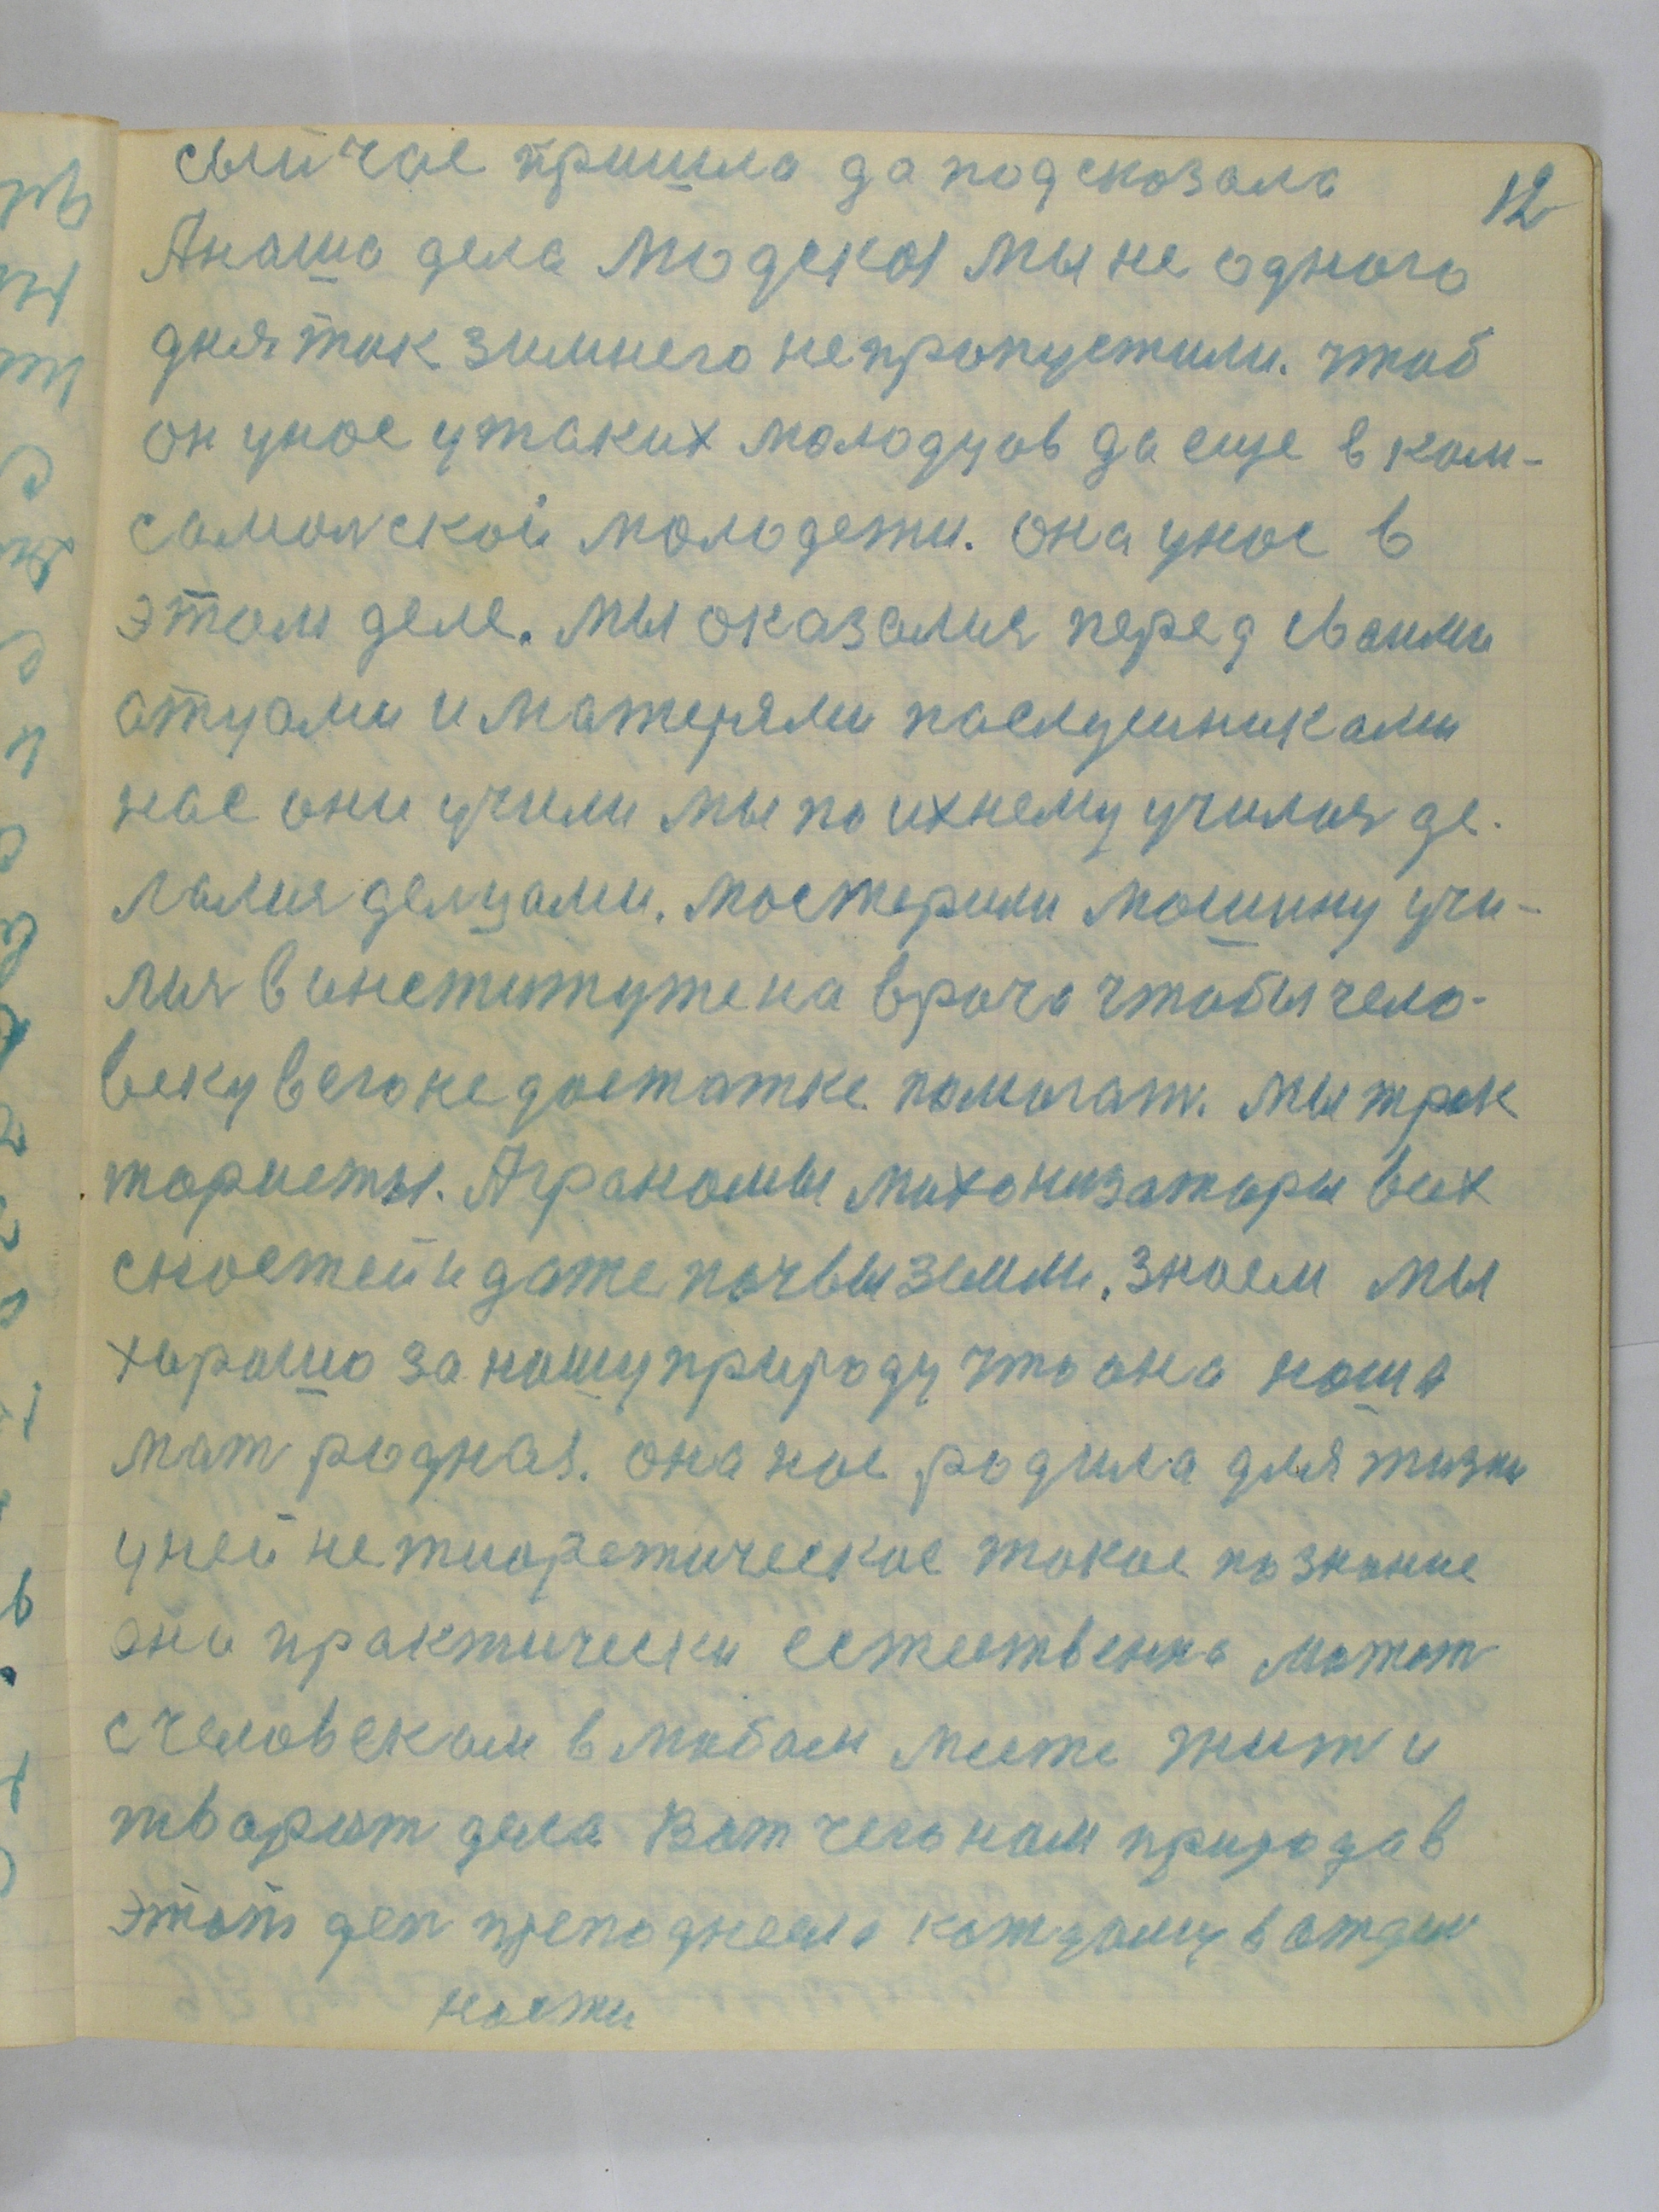 12
сыйчас пришла да подсказала
Анаша дела людская мы не одного
дня так зимнего непропустили. чтоб
он унас утаких молодцов да еще в ком-
самолской молодежи. она унас в
этом деле. мы оказалися перед своими
атцами и матерями паслушниками
нас они учили мы по ихнему училися де-
лалися делцами. мастерили машину учи-
лися в институте на врача чтобы чело-
веку в его недостатке помогат. мы трак
тористы. Аграномы миханизаторы всех
сностей и даже почвы земли. знаем мы
харашо за нашу природу что она наша
мат родная. она нас родила для жизни
уней не тиоретическое такое познание
она практически естественна может
с человеком в любом месте жит и
творит дела Вот чего нам природа в
этот ден преподнесла каждому в отдел
ности